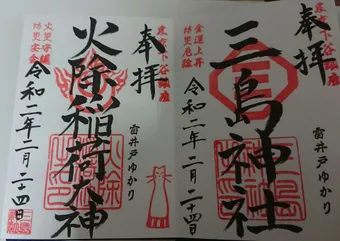 奉拝
東京下谷鎮座
三島神社
金運上昇
防災厄除
雷井戸ゆかり
令和二年二月二十四日
奉拝
東京下谷鎮座
火除稲荷大神
火災守護
防災安全
雷井戸ゆかり
令和二年二月二十四日